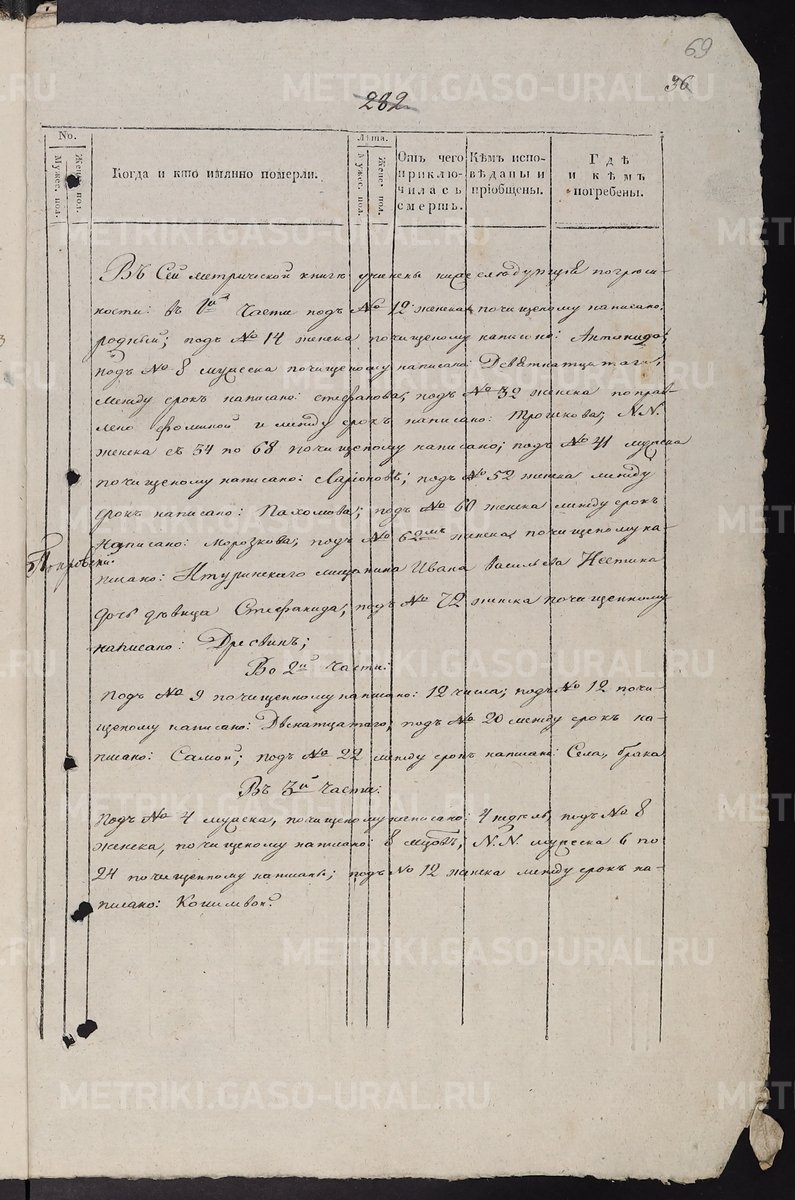 69
36
282
No.
Мужес. пол.
Женс. пол.
Когда и кто имянно померли.
Лѣта.
Мужес. пол.
Женс. пол.
Отъ чего приклю-
чилась
смерть.
Кѣмъ испо-
вѣданы и
пріобщены.
Гдѣ
и кѣмъ
погребены.
Въ Сей метрической книгѣ учинены нижеслѣдующія погрѣш-
ности: въ 1й Части подъ № 12 женска, почищеному написано:
родный; подъ № 14 женска почищеному написано: Антонида;
подъ № 8 мужеска почищеному написано: Девѣтнатцатаго;
между срокъ написано: стефанова; подъ № 32 женска поправ-
лено фоминой и между срокъ написано: трошкова; N.N.
женска съ 54 по 68 почищеному написано; подъ № 41 мужска
почищеному написано: Ларіоновъ; подъ № 52 женска между
срокъ написано: Пахомова; подъ № 60 женска между срокъ
написано: Морозкова; подъ № женска почищеному на-
писано: Нтуринскаго мещанина Ивана Васильева
дочь дѣвица Стефанида; подъ № 72 женска почищенному
написано: Дресвинъ;
Во 2й Части:
подъ № 9 почищенному написано: 12 числа; подъ № 12 почи-
щеному написано: Двенатцатаго; подъ № 20 между срокъ на-
писано: Самой; подъ № 22 между срокъ написано: Села, брака
Въ 3й Части:
подъ № 4 мужска, почищеному написано: 4 недѣль, подъ № 8
женска, почищеному написано: 8 N.N. мужеска 6 по
24 почищенному написаны; подъ № 12 женска между срокъ на-
писано:
METRIKI.GASO-URAL.RU